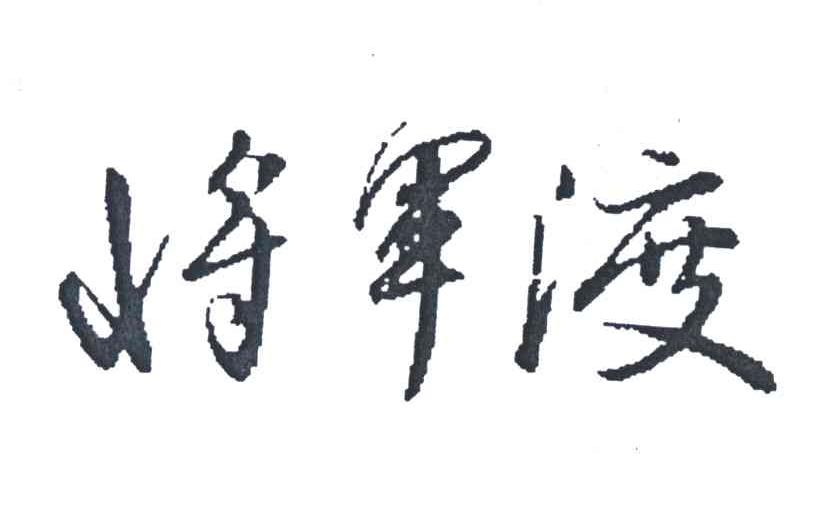 将军渡